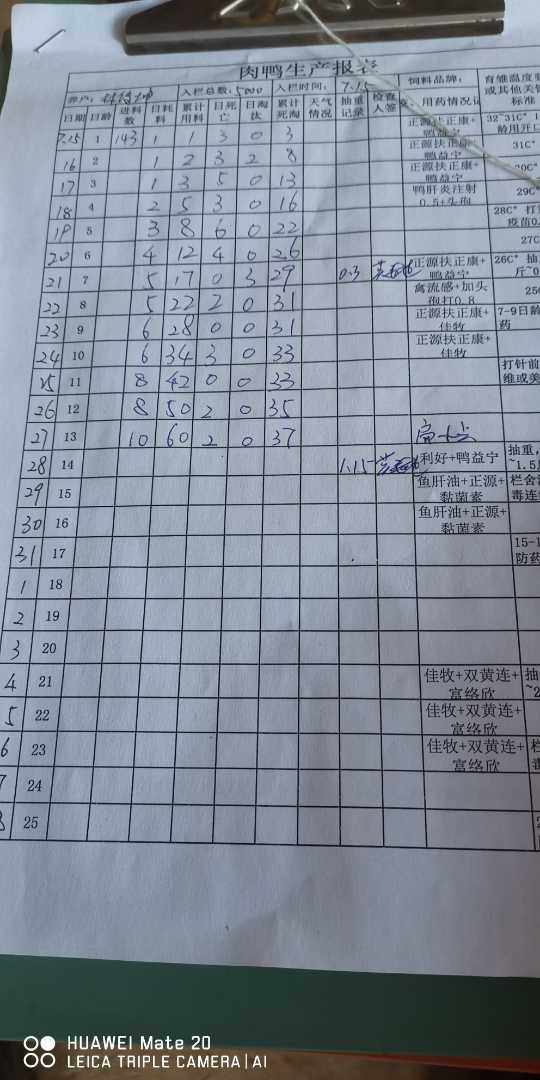 肉鸭生产报表
养户: 入栏总数:5000 入栏时间: 7.15 饲料品牌: 育雏温度
日期 日龄 进料数 日耗料 累计用料 日死亡 日淘汰 累计死淘 天气情况 抽重记录 检查人签 用药情况 或其他关 标准
7.15 1 143 1 1 3 0 3 正源扶正康+鸭益宁 32~31C°
16 2 1 2 3 2 8 正源扶正康+鸭益宁 31C°
17 3 1 3 5 0 13 正源扶正康+鸭益宁
18 4 2 5 3 0 16 鸭肝炎注射0.5+头孢 29C
19 5 3 8 6 0 22 28C°
20 6 4 12 4 0 26 27C
21 7 5 17 0 3 29 0.3 正源扶正康+鸭益宁 26C° 抽
22 8 5 22 2 0 31 禽流感+加头孢打0.8
23 9 6 28 0 0 31 正源扶正康+佳牧 7-9日龄 药
24 10 6 34 3 0 33 正源扶正康+佳牧
25 11 8 42 0 0 33 打针前 维或美
26 12 8 50 2 0 35
27 13 10 60 2 0 37
28 14 1.15 利好+鸭益宁 抽重, ~1.5
29 15 鱼肝油+正源+黏菌素 栏舍 毒连
30 16 鱼肝油+正源+黏菌素
31 17 15-1 防药
1 18
2 19
3 20
4 21 佳牧+双黄连+富络欣 抽 ~2
5 22 佳牧+双黄连+富络欣
6 23 佳牧+双黄连+富络欣 栏 毒
7 24
8 25
HUAWEI Mate 20
LEICA TRIPLE CAMERA | AI